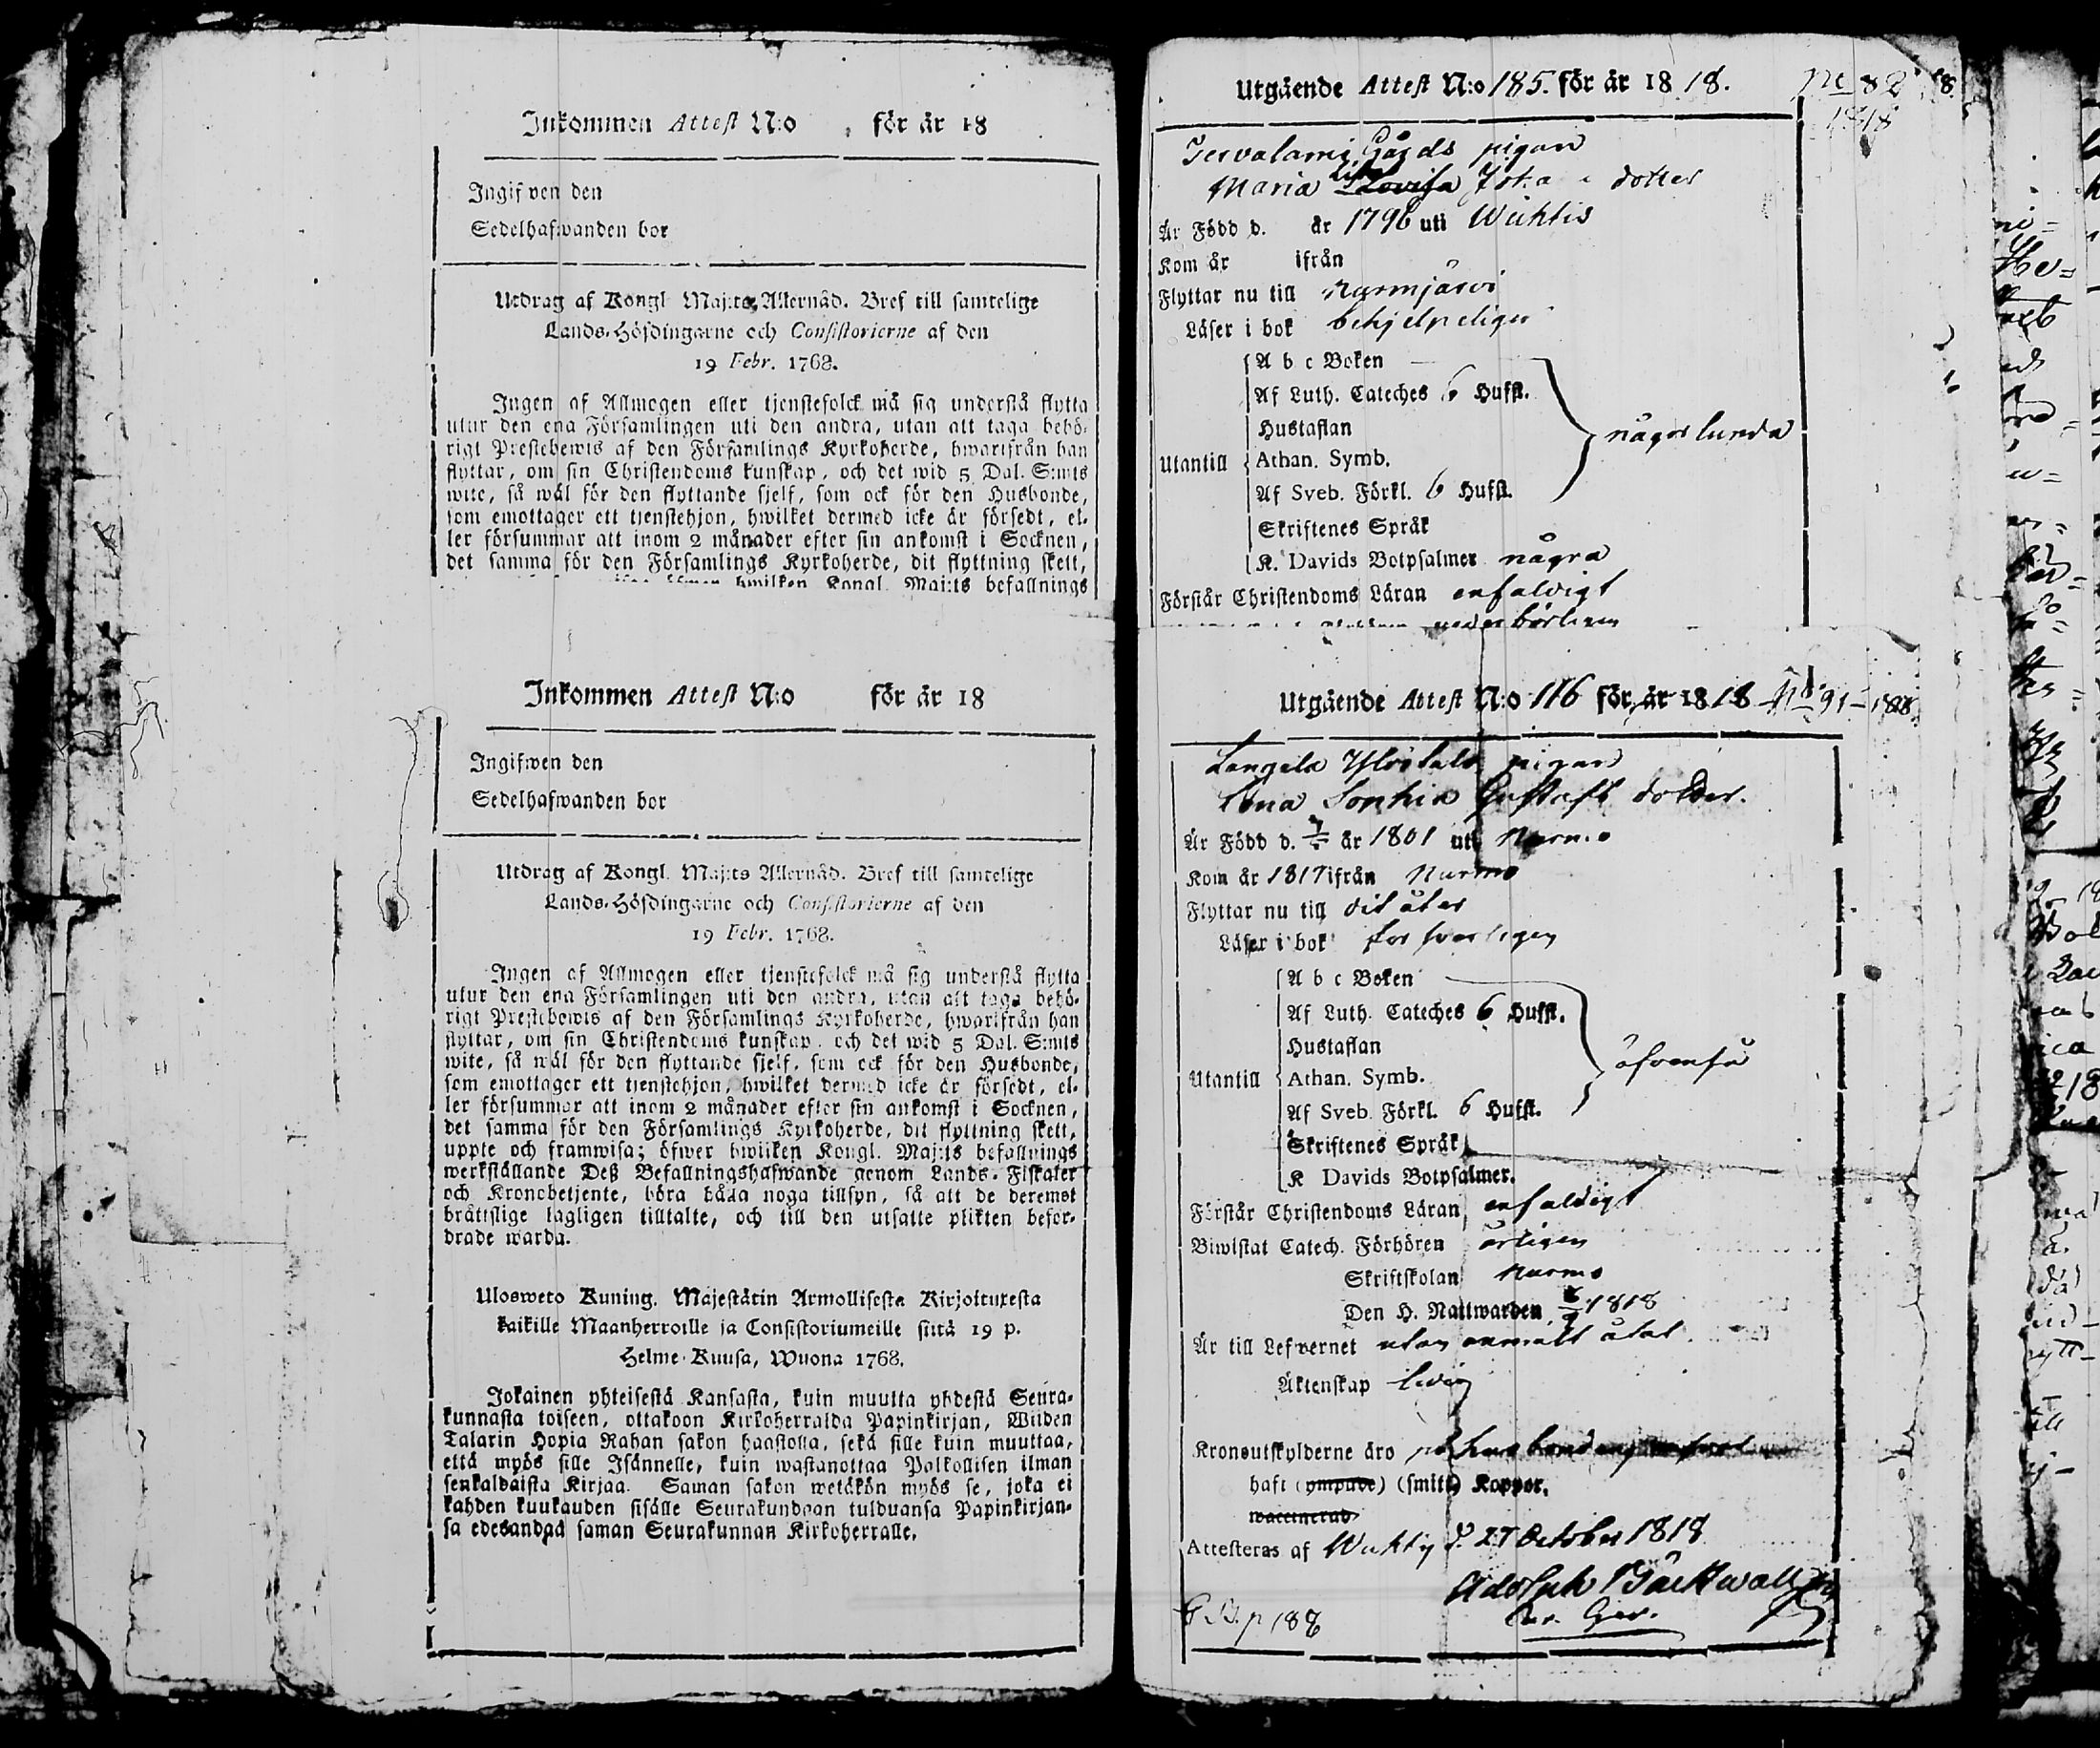 Inkommen Attest N:o , för år 18
Ingifwen den
Sedelhafwanden bor
Utdrag af Kongl Maj:ts Allernåd. Bref till samtelige
Lands-Höfdingarne och Consistorierne af den
19 Febr. 1768.
Ingen af Allmogen eller tjenstefolck må sig understå flytta
utur den ena Församlingen uti den andra, utan att taga behö-
rigt Prestebewis af den Församlings Kyrkoherde, hwarifrån han
flyttar, om sin Christendoms kunskap, och det wid 5 Dal. S:mts
wite, så wäl för den flyttande sjelf, som ock för den Husbonde,
som emottager ett tjenstehjon, hwilket dermed icke är försedt, el-
ler försummar att inom 2 månader efter sin ankomst i Socknen,
det samma för den Församlings Kyrkoherde, dit flyttning skett,
hwilken Kongl. Maj:ts befallnings
Inkommen Attest N:o för år 18
Ingifwen den
Sedelhafwanden bor
Utdrag af Kongl. Maj:ts Allernåd. Bref till samtelige
Lands-Höfdingarne och Consistorierne af den
19 Febr. 1768.
Ingen af Allmogen eller tjenstefolck må sig understå flytta
utur den ena Församlingen uti den andra, utan att taga behö-
rigt Prestebewis af den Församlings Kyrkoherde, hwarifrån han
flyttar, om sin Christendoms kunskap, och det wid 5 Dal. S:mts
wite, så wäl för den flyttande sjelf, som ock för den Husbonde,
som emottager ett tjenstehjon, hwilket dermed icke är försedt, el-
ler försummar att inom 2 månader efter sin ankomst i Socknen,
det samma för den Församlings Kyrkoherde, dit flyttning skett,
uppte och framwisa; öfwer hwilken Kongl. Maj:ts befallnings
werkställande Deß Befallningshafwande genom Lands-Fiskaler
och Kronobetjente, böra hålla noga tillsyn, så att de deremot
bråttslige lagligen tilltalte, och till den utsatte plikten befor-
drade warda.
Ulosweto Kuning. Majestätin Armollisesta Kirjoituxesta
kaikille Maanherroille ja Consistoriumeille siitä 19 p.
Helme-Kuusa, Wuona 1768.
Jokainen yhteisestä Kansasta, kuin muutta yhdestä Seura-
kunnasta toiseen, ottakoon Kirkoherralda Papinkirjan, Wiiden
Talarin Hopia Rahan sakon haastolla, sekä sille kuin muuttaa,
että myös sille Isännelle, kuin wastanottaa Palkollisen ilman
senkaldaista Kirjaa. Saman sakon wetäkön myös se, joka ei
kahden kuukauden sisälle Seurakundaan tulduansa Papinkirjan-
sa edesandad saman Seurakunnan Kirkoherralle.
Utgående Attest N:o 185. för år 18 18. No 82 18.
1818
Gårds pigan
Maria Lovisa dotter
Är Född d. år 1796 uti Wichtis
Kom år ifrån
Flyttar nu till Nurmjärvi
Läser i bok behjelpeligen
A b c Boken
Af Luth. Cateches 6 Hufst.
Hustaflan
någorlunda
Utantill Athan. Symb.
Af Sveb. Förkl. 6 Hufst.
Skriftenes Språk
K. Davids Botpsalmer några
Förstår Christendoms Läran enfaldigt
Utgående Attest N:o 116 för år 18 18 No 91 - 1818.
pigan
Lena Sophia Gustafs dotter.
Är Född d. år 1801 uti Nurmo
Kom år 1817 ifrån Nurmo
Flyttar nu till dit åter
Läser i bok försvarligen
A b c Boken
Af Luth. Cateches 6 Hufst.
Hustaflan
äfvenså
Utantill Athan. Symb.
Af Sveb. Förkl. 6 Hufst.
Skriftenes Språk
K Davids Botpsalmer.
Förstår Christendoms Läran enfaldigt
Biwistat Catech. Förhören årligen
Skriftskolan Nurmo
Den H. Nattwarden 1818
Är till Lefwernet utan anmält åtal.
Äktenskap ledig
Kronoutskylderne äro
haft (ympade) (smitt) Koppor.
waccinerad
Attesteras af Wichtis d. 27 October 1818
Adolph Bäckwall